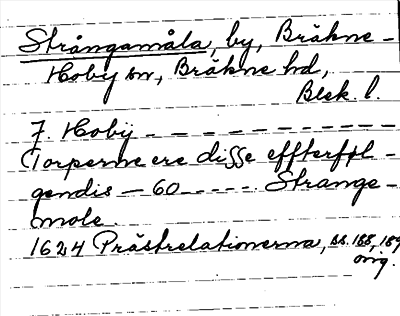 Strångamåla, by, Bräkne-
Hoby sn, Bräkne hd,
Blek. l.
J. Hobÿ - - - - - - - - - - -
Torperne ere disse effterføl-
gendis - 60 - - - - - Strange-
mole.
1624 Prästrelationerna, ss. 188, 189
orig.